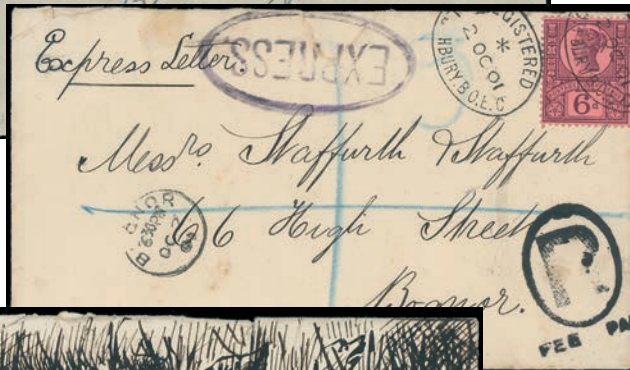 Express Letter.
EXPRESS.
REGISTERED
*
2 OC 01
HBURY.B.O.E.C
6D
Messrs Staffurth & Staffurth
66 High Street
Bognor.
BOGNOR
6.30PM
OC
FEE PA